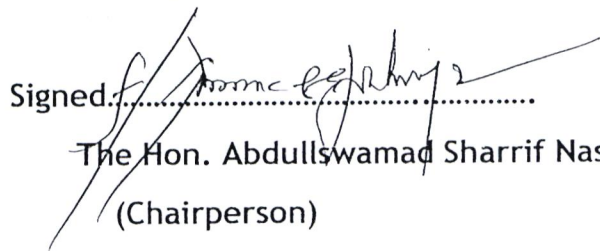 Signed
The Hon. Abdullswamad Sharrif Nas
(Chairperson)